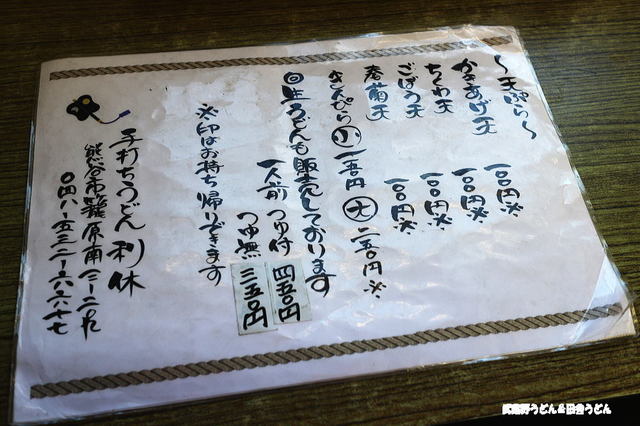 〜天ぷら〜
かきあげ天 一〇〇円※
ちくわ天 一〇〇円※
ごぼう天 一〇〇円※
春菊天 一〇〇円※
きんぴら 小 一五〇円 大 二五〇円※
◎生うどんも販売しております
一人前 つゆ付 四五〇円
つゆ無 三五〇円
※印はお持ち帰りできます
手打ちうどん 利休
熊谷市籠原南三-二九
〇四八-五三二-六六七七
武蔵野うどん&田舎うどん